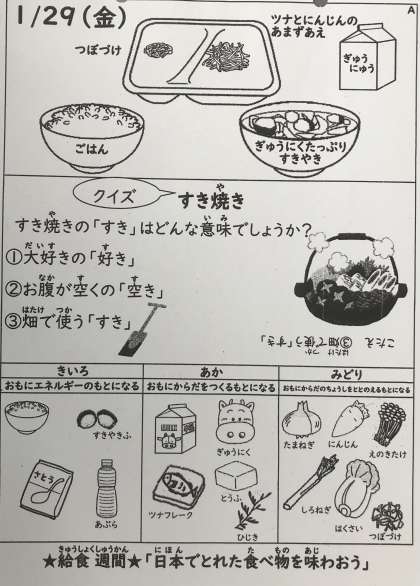 1/29(金)
A
ツナとにんじんの
あまずあえ
つぼづけ
ぎゅう
にゅう
ごはん
ぎゅうにくたっぷり
すきやき
クイズ
すき焼き
や
すき焼きの「すき」はどんな意味でしょうか?
や
いみ
①大好きの「好き」
だいす
す
②お腹が空くの「空き」
なか
す
す
③畑で使う「すき」
はたけ
つか
こたえ ③畑で使う「すき」
はたけ
つか
きいろ
おもにエネルギーのもとになる
すきやきふ
さとう
あぶら
あか
おもにからだをつくるもとになる
ぎゅうにく
ツナフレーク
とうふ
ひじき
みどり
おもにからだのちょうしをととのえるもとになる
たまねぎ
にんじん
えのきたけ
しろねぎ
はくさい
つぼづけ
★給食 週間★「日本でとれた食べ物を味わおう」
きゅうしょくしゅうかん
にほん
た
もの
あじ